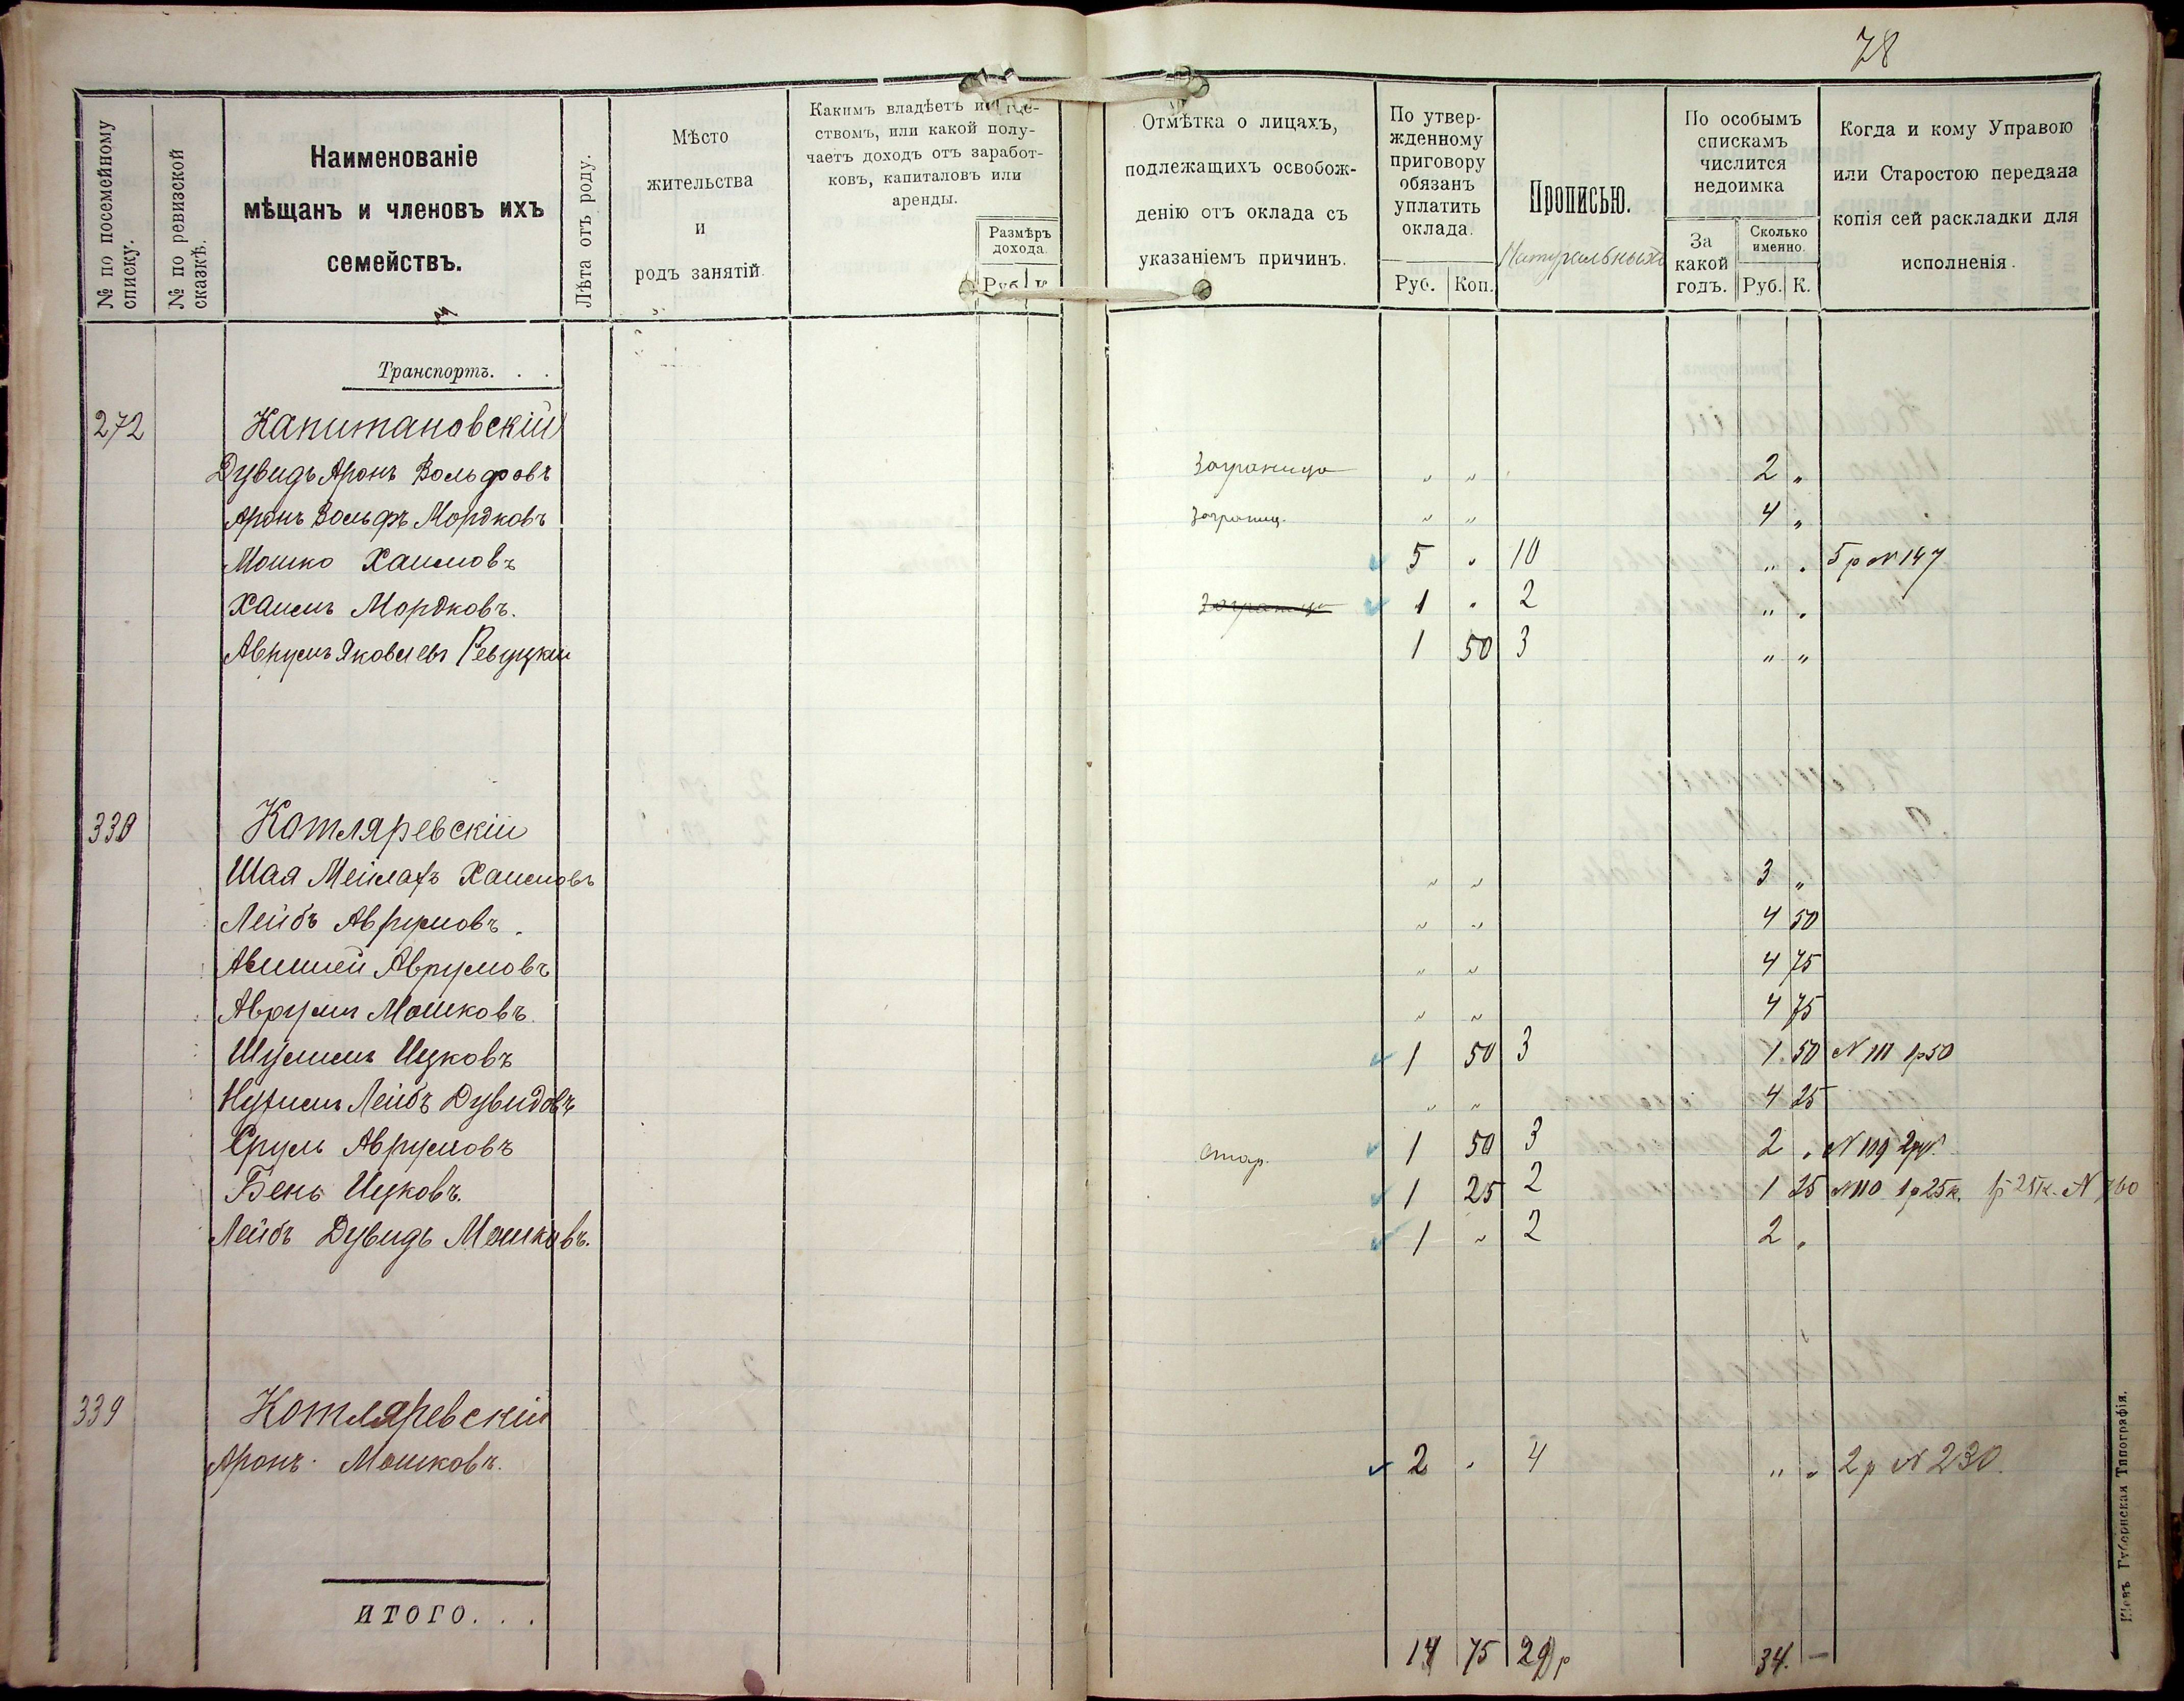 78
№ по посемейному списку.
№ по ревизской сказкѣ.
Наименованіе
мѣщанъ и членовъ ихъ
семействъ.
Лѣта отъ роду.
Мѣсто
жительства
и
родъ занятій.
Какимъ владѣетъ
ствомъ, или какой полу-
чаетъ доходъ отъ заработ-
ковъ, капиталовъ или
аренды.
Размѣръ
дохода.
Руб. К
Отмѣтка о лицахъ,
подлежащихъ освобож-
денію отъ оклада съ
указаніемъ причинъ.
По утвер-
жденному
приговору
обязанъ
уплатить
оклада.
Руб. Коп.
Прописью.
Натуральныхъ
По особымъ
спискамъ
числится
недоимка
За
какой
годъ.
Сколько
именно.
Руб. К.
Когда и кому Управою
или Старостою передана
копія сей раскладки для
исполненія.
Транспортъ. . .
272 Капитановскій
Дувидъ Аронъ Вольфовъ Заграница " " 2 "
Аронъ Вольфъ Мордковъ Заграниц. " " 4 "
Мошко Хаимовъ 5 " 10 " " 5 р № 147
Хаимъ Мордковъ. Заграница 1 " 2 " "
Аврумъ Яковлевъ Ревуцкій 1 50 3 " "
330 Котляревскій
Шая Мейлахъ Хаимовъ " " 3 "
Лейбъ Аврумовъ " " 4 50
Авишей Аврумовъ " " 4 75
Аврумъ Мошковъ. " " 4 75
Шулимъ Ицковъ 1 50 3 1.50 № 111 1р50
Нухимъ Лейбъ Дувидовъ " " 4 25
Сруль Аврумовъ стар. 1 50 3 2 " № 119 2 руб.
Бень Ицковъ. 1 25 2 1 25 № 110 1р25к. 1р 25к. № 760
Лейбъ Дувидъ Мошковъ. 1 " 2 2 "
339 Котляревскій
Аронъ Мошковъ. 2 " 4 " " 2 р № 230.
ИТОГО. . .
14 75 29 р 34. —
Кіевъ Губернская Типографія.